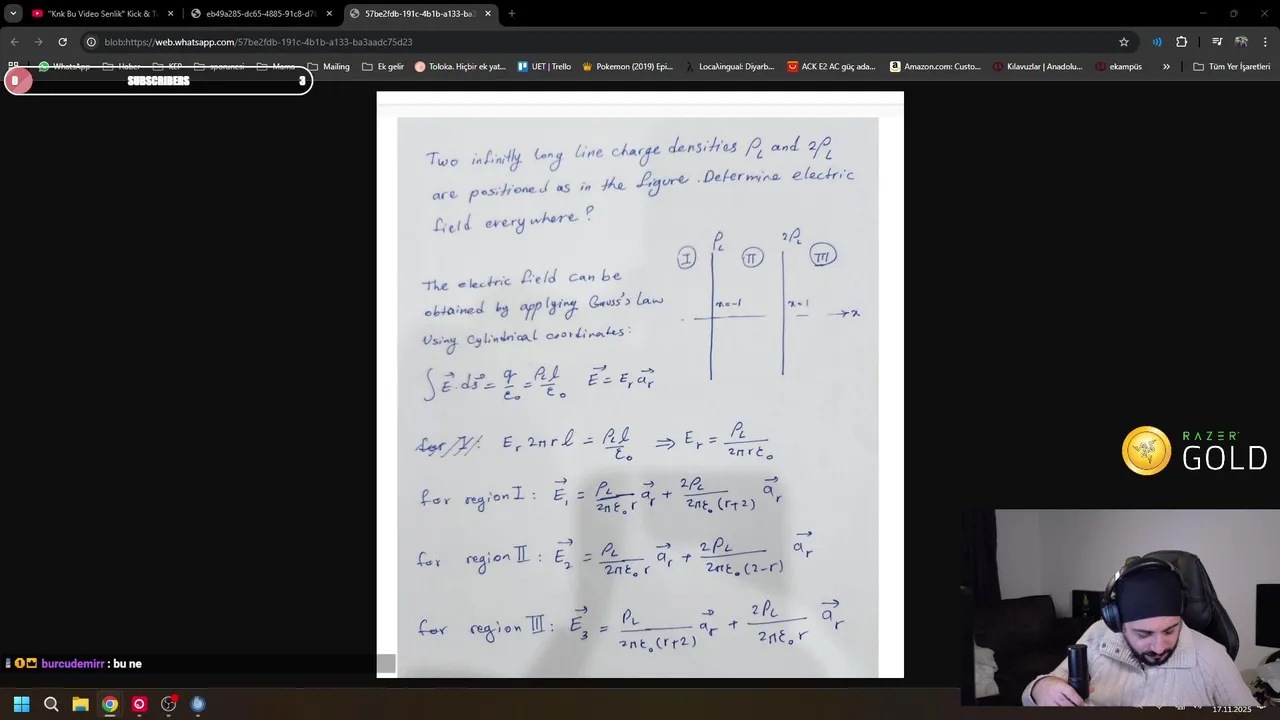 "Knk Bu Video Senlik" Kick & T
eb49a285-dc65-4885-91c8-d7
57be2fdb-191c-4b1b-a133-ba3
blob:https://web.whatsapp.com/57be2fdb-191c-4b1b-a133-ba3aadc75d23
WhatsApp Haber KEP sporunesi Mama Mailing Ek gelir Toloka. Hiçbir ek yat... UET | Trello Pokemon (2019) Epi... Localingual: Diyarb... ACK E2 AC güç ada... Amazon.com: Custo... Kılavuzlar | Anadolu... ekampüs » Tüm Yer İşaretleri
0 SUBSCRIBERS 3
Two infinitly long line charge densities ρL and 2ρL
are positioned as in the figure. Determine electric
field everywhere?
I ρL II 2ρL III
x=-1 x=1 →x
The electric field can be
obtained by applying Gauss's law
using cylindrical coordinates:
∫E⃗.ds⃗ = q/ε₀ = ρLl/ε₀ E⃗ = Er a⃗r
for I: Er 2πrl = ρLl/ε₀ ⇒ Er = ρL/2πrε₀
for region I: E⃗₁ = ρL/2πε₀r a⃗r + 2ρL/2πε₀(r+2) a⃗r
for region II: E⃗₂ = ρL/2πε₀r a⃗r + 2ρL/2πε₀(2-r) a⃗r
for region III: E⃗₃ = ρL/2πε₀(r+2) a⃗r + 2ρL/2πε₀r a⃗r
RAZER
GOLD
burcudemirr : bu ne
17.11.2025